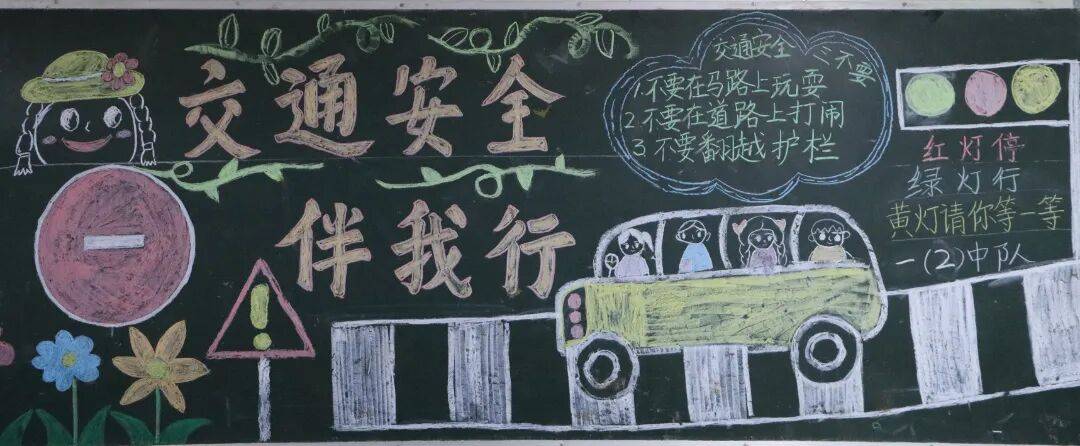 交通安全
伴我行
交通安全三不要
1.不要在马路上玩耍
2.不要在道路上打闹
3.不要翻越护栏
红灯停
绿灯行
黄灯请你等一等
一(2)中队